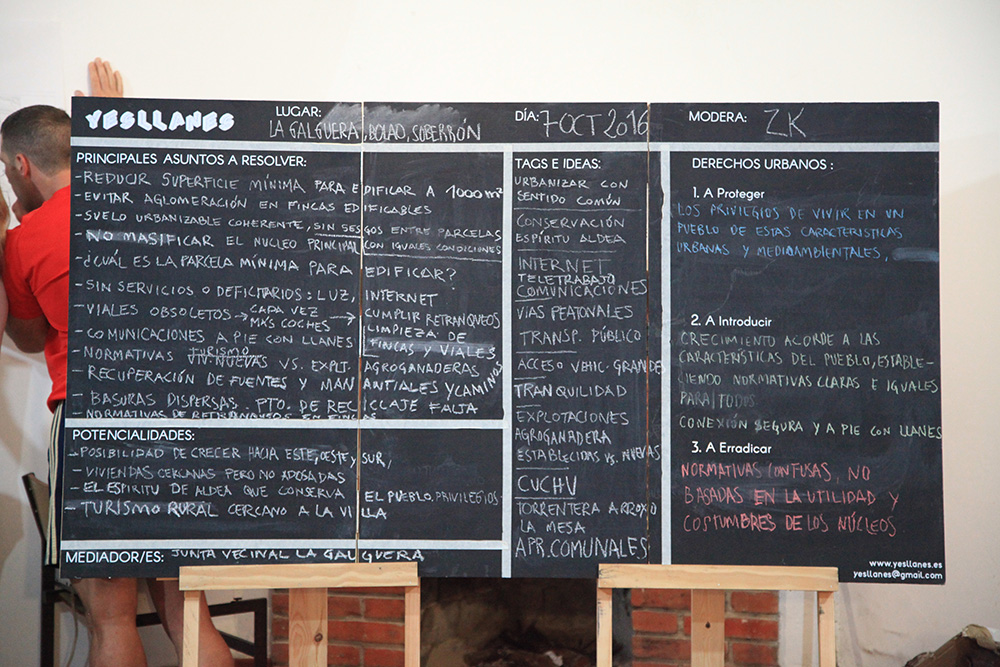 YESLLANES
LUGAR:
LA GALGUERA, BOLAO, SOBERRÓN
DÍA: 7 OCT 2016
MODERA: ZK
PRINCIPALES ASUNTOS A RESOLVER:
- REDUCIR SUPERFICIE MÍNIMA PARA EDIFICAR A 1000 m²
- EVITAR AGLOMERACIÓN EN FINCAS EDIFICABLES
- SUELO URBANIZABLE COHERENTE, SIN SESGOS ENTRE PARCELAS
CON IGUALES CONDICIONES
- NO MASIFICAR EL NUCLEO PRINCIPAL
- ¿CUÁL ES LA PARCELA MÍNIMA PARA EDIFICAR?
- SIN SERVICIOS O DEFICITARIOS: LUZ, INTERNET
- VIALES OBSOLETOS → CADA VEZ MÁS COCHES → CUMPLIR RETRANQUEOS
LIMPIEZA DE FINCAS Y VIALES
- COMUNICACIONES A PIE CON LLANES
- NORMATIVAS TURISMO VIV. NUEVAS VS. EXPLT. AGROGANADERAS
- RECUPERACIÓN DE FUENTES Y MANANTIALES Y CAMINOS
- BASURAS DISPERSAS, PTO. DE RECICLAJE FALTA
- NORMATIVAS DE RETRANQUEOS EN FINCAS
POTENCIALIDADES:
- POSIBILIDAD DE CRECER HACIA ESTE, OESTE Y SUR,
- VIVIENDAS CERCANAS PERO NO ADOSADAS
- EL ESPIRITU DE ALDEA QUE CONSERVA EL PUEBLO, PRIVILEGIOS
- TURISMO RURAL CERCANO A LA VILLA
MEDIADOR/ES: JUNTA VECINAL LA GALGUERA
TAGS E IDEAS:
URBANIZAR CON
SENTIDO COMÚN
CONSERVACIÓN
ESPÍRITU ALDEA
INTERNET
TELETRABAJO
COMUNICACIONES
VÍAS PEATONALES
TRANSP. PÚBLICO
ACCESO VEHIC. GRANDES
TRANQUILIDAD
EXPLOTACIONES
AGROGANADERA
ESTABLECIDAS VS. NUEVAS
CUCHU
TORRENTERA ARROYO
LA MESA
APR. COMUNALES
DERECHOS URBANOS :
1. A Proteger
LOS PRIVILEGIOS DE VIVIR EN UN
PUEBLO DE ESTAS CARACTERISTICAS
URBANAS Y MEDIOAMBIENTALES,
2. A Introducir
CRECIMIENTO ACORDE A LAS
CARACTERÍSTICAS DEL PUEBLO, ESTABLE-
CIENDO NORMATIVAS CLARAS E IGUALES
PARA TODOS
CONEXIÓN SEGURA Y A PIE CON LLANES
3. A Erradicar
NORMATIVAS CONFUSAS, NO
BASADAS EN LA UTILIDAD Y
COSTUMBRES DE LOS NÚCLEOS
www.yesllanes.es
yesllanes@gmail.com